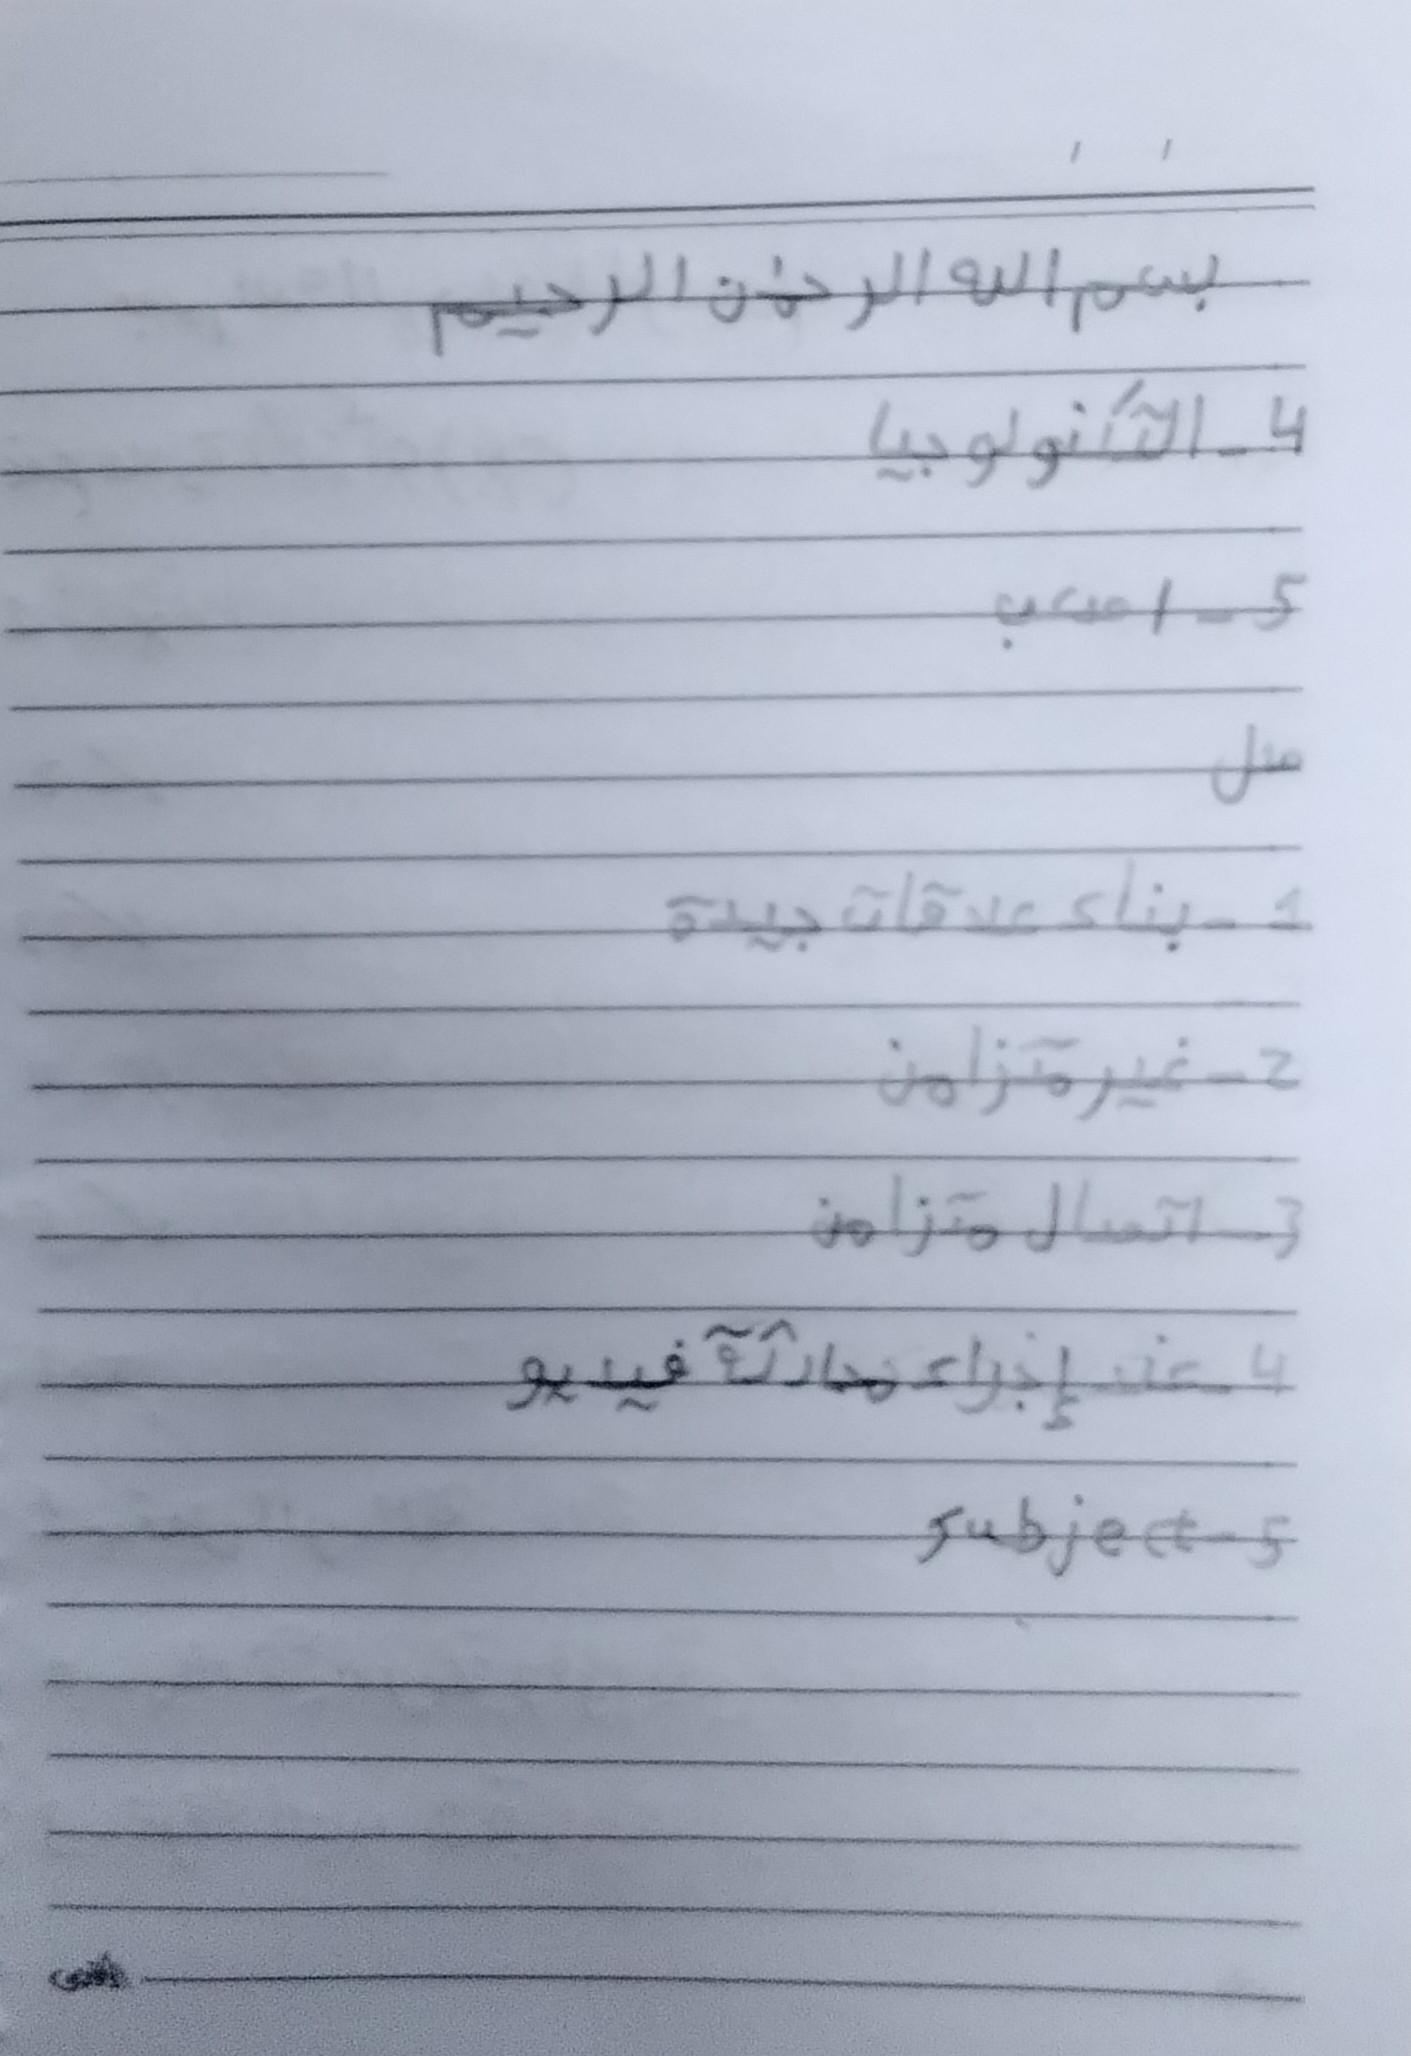 بسم الله الرحمٰن الرحيم
4 - التكنولوجيا
5 - اصعب
مثل
1 - بناء علاقات جيدة
2 - غير متزامن
3 - اتصال متزامن
4 - عند إجراء محادثة فيديو
5 - subject